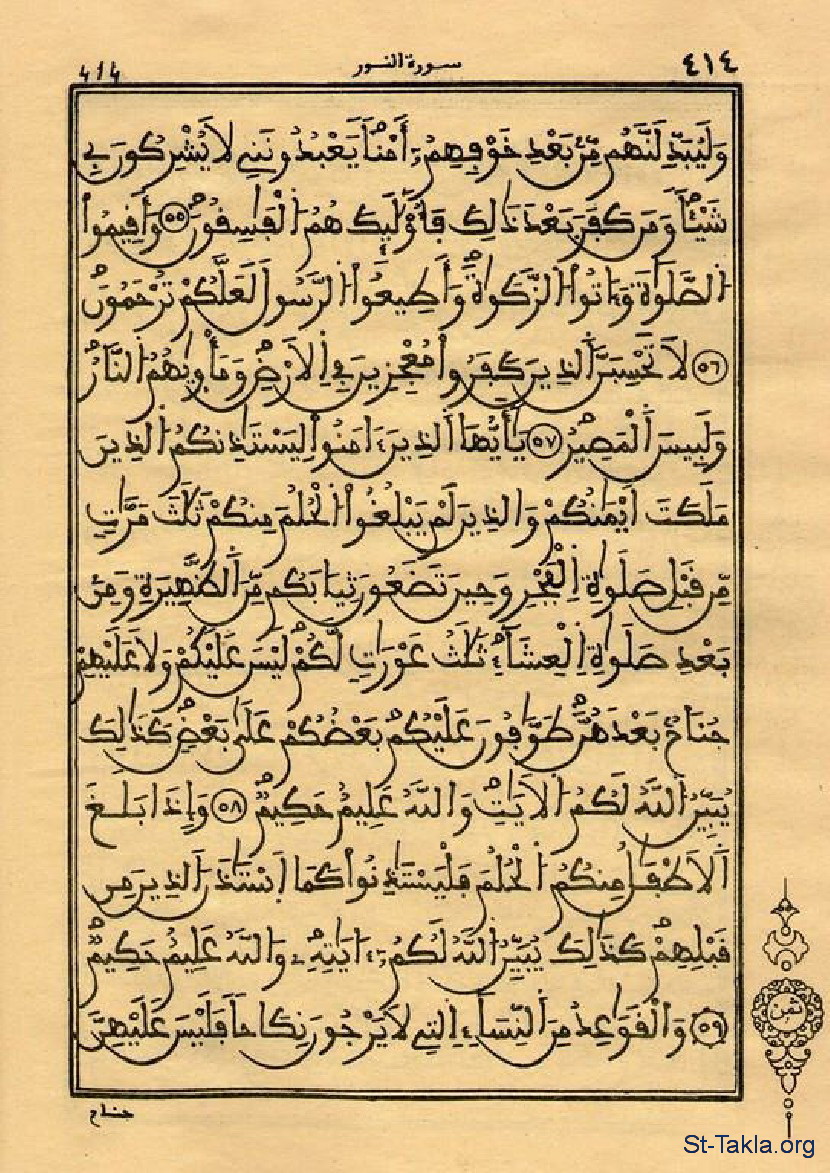 ٤١٤ سورة النور 414
وَلَيُبَدِّلَنَّهُم مِّنۢ بَعْدِ خَوْفِهِمُۥٓ أَمْناٗ يَعْبُدُونَنِے لَا يُشْرِكُونَ بِے
شَيْـٔاٗ وَمَن كَفَرَ بَعْدَ ذَٰلِكَ فَأُوْلَٰٓئِكَ هُمُ اُ۬لْفَٰسِقُونَ ٥٥ وَأَقِيمُواْ
اُ۬لصَّلَوٰةَ وَءَاتُواْ اُ۬لزَّكَوٰةَ وَأَطِيعُواْ اُ۬لرَّسُولَ لَعَلَّكُمْ تُرْحَمُونَ
٥٦ لَا تَحْسِبَنَّ اَ۬لذِينَ كَفَرُواْ مُعْجِزِينَ فِے اِ۬لْأَرْضِ وَمَأْوٜيٰهُمُ اُ۬لنَّارُ
وَلَبِيسَ اَ۬لْمَصِيرُ ٥٧ يَٰٓأَيُّهَا اَ۬لذِينَ ءَامَنُواْ لِيَسْتَٰٔذِنكُمُ اُ۬لذِينَ
مَلَكَتَ اَيْمَٰنُكُمْ وَالذِينَ لَمْ يَبْلُغُواْ اُ۬لْحُلُمَ مِنكُمْ ثَلَٰثَ مَرَّٰتٖ
مِّن قَبْلِ صَلَوٰةِ اِ۬لْفَجْرِ وَحِينَ تَضَعُونَ ثِيَابَكُم مِّنَ اَ۬لظَّهِيرَةِ وَمِنۢ
بَعْدِ صَلَوٰةِ اِ۬لْعِشَآءِ ثَلَٰثُ عَوْرَٰتٖ لَّكُمْ لَيْسَ عَلَيْكُمْ وَلَا عَلَيْهِمْ
جُنَاحُۢ بَعْدَهُنَّ طَوَّٰفُونَ عَلَيْكُم بَعْضُكُمْ عَلَىٰ بَعْضٖ كَذَٰلِكَ
يُبَيِّنُ اُ۬للَّهُ لَكُمُ اُ۬لْأٓيَٰتِ وَاللَّهُ عَلِيمٌ حَكِيمٞ ٥٨ وَإِذَا بَلَغَ
اَ۬لْأَطْفَٰلُ مِنكُمُ اُ۬لْحُلُمَ فَلْيَسْتَٰٔذِنُواْ كَمَا اَ۪سْتَٰٔذَنَ اَ۬لذِينَ مِن
قَبْلِهِمْ كَذَٰلِكَ يُبَيِّنُ اُ۬للَّهُ لَكُمُۥٓ ءَايَٰتِهِۦ وَاللَّهُ عَلِيمٌ حَكِيمٞ
٥٩ وَالْقَوَٰعِدُ مِنَ اَ۬لنِّسَآءِ اِ۬لتِے لَا يَرْجُونَ نِكَاحاٗ فَلَيْسَ عَلَيْهِنَّ
ثمن
جناح
St-Takla.org